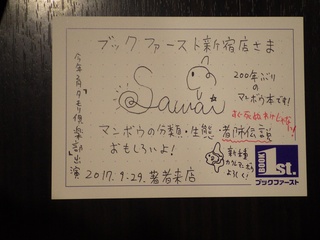 ブックファースト新宿店さま
Sawai
200年ぶり
の
マンボウ本です!
マンボウの分類・生態・都市伝説
おもしろいよ!
新種
よろしく!
2017.9.29. 著者来店
タモリ倶楽部出演
BOOK 1st.
ブックファースト